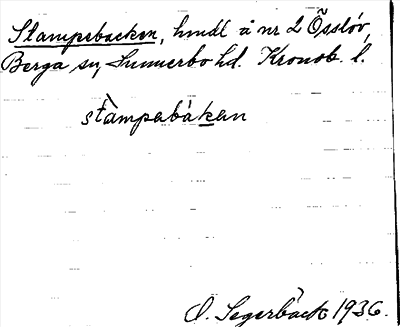 Stampebacken, hmdl å nr 2 Össlöv,
Berga sn, Sunnerbo hd. Kronob. l.
stàmpabákan
O. Segerbäck 1936.